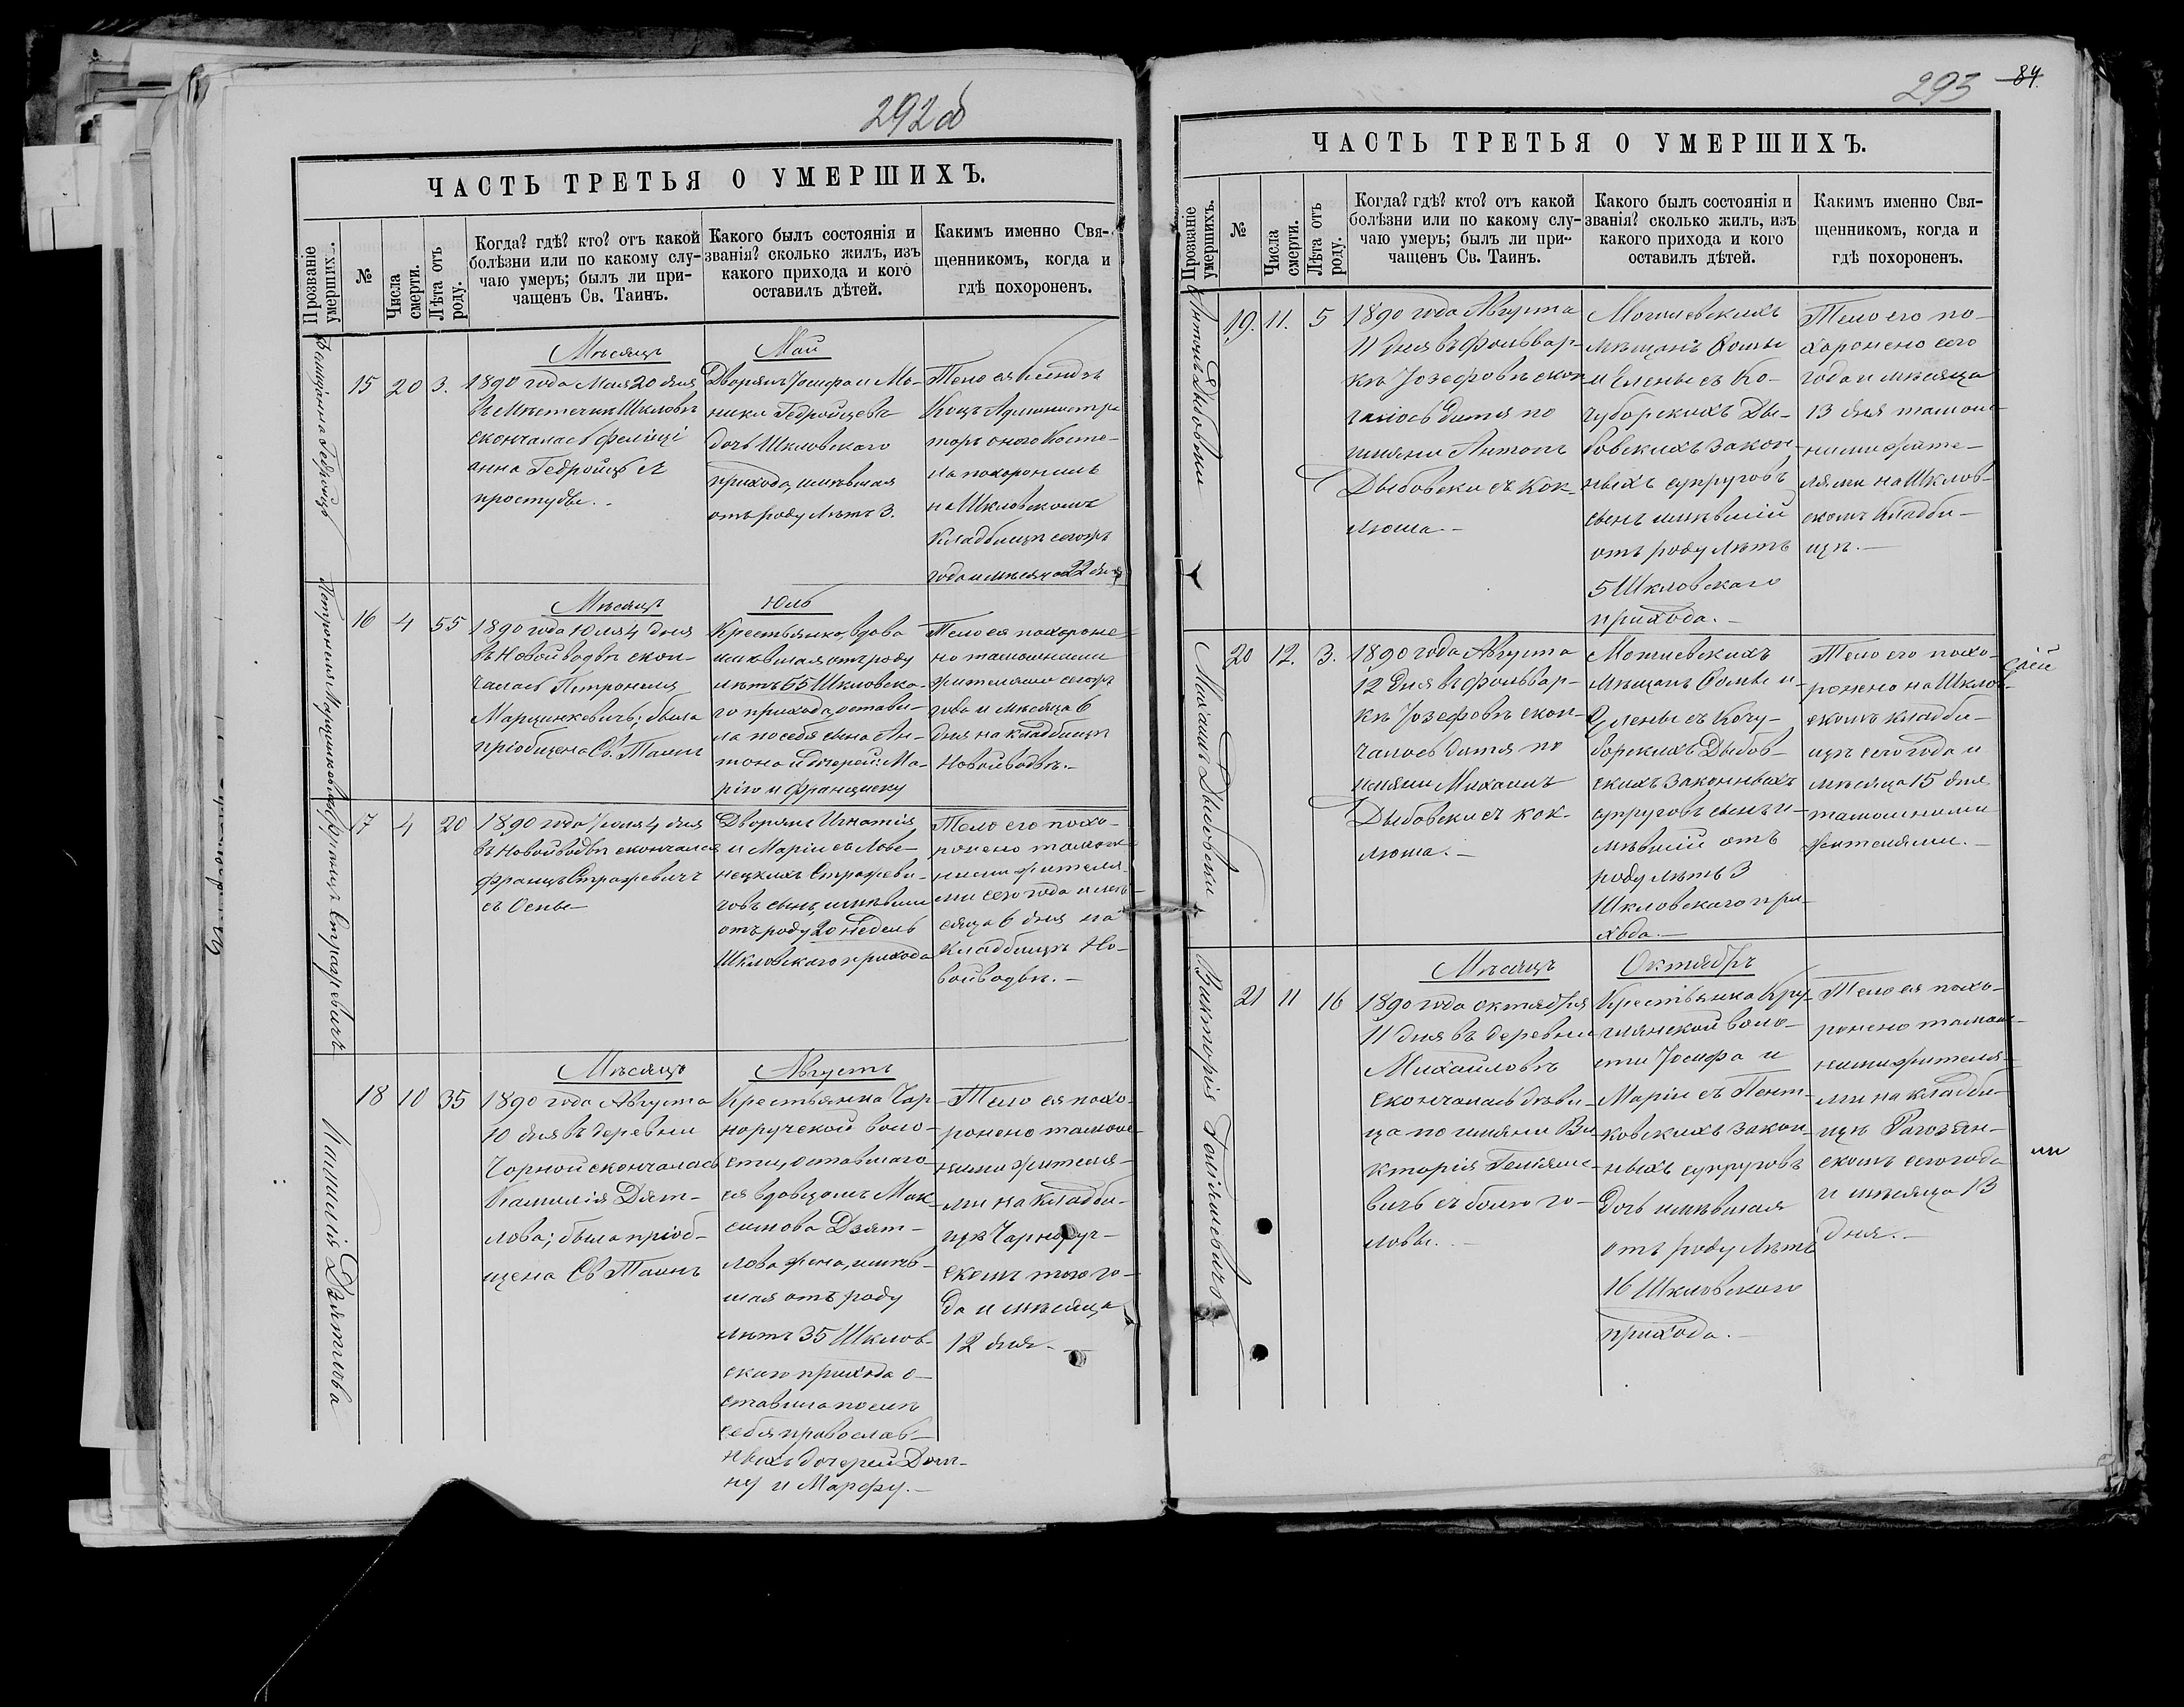 292об
ЧАСТЬ ТРЕТЬЯ О УМЕРШИХЪ.
Прозваніе умершихъ.
№
Числа смерти.
Лѣта отъ роду.
Когда? гдѣ? кто? отъ какой
болѣзни или по какому слу-
чаю умеръ; былъ ли при-
чащенъ Св. Таинъ.
Какого былъ состоянія и
званія? сколько жилъ, изъ
какого прихода и кого
оставилъ дѣтей.
Какимъ именно Свя-
щенникомъ, когда и
гдѣ похороненъ.
Мѣсяцъ
Май
Гедройцъ
15
20
3.
1890 года Мая 20 дня
въ Мѣстечкѣ Шкловѣ
скончалась Фелиці
анна Гедройцъ
простуды.
Дворянъ Іосифа и Мо-
ники Гедройцевъ
дочь Шкловскаго
прихода, имѣвшая
отъ роду лѣтъ 3.
Тело ея Ксендзъ
Коцъ Администра
торъ оного Косте-
ла похоронилъ
на Шкловскомъ
Кладбищѣ сегожъ
года и мѣсяца 22 дня
Мѣсяцъ
Юль
Петронеля Марцинкевичъ
16
4
55
1890 года Юля 4 дня
въ Новойводвѣ скон-
чалась Петронеля
Марцинкевичъ; была
пріобщена Св. Таинъ
Крестьянка, вдова
имѣвшая отъ роду
лѣтъ 55 Шкловска-
го прихода, остави-
ла по себѣ сына Ан-
тона и дочерей: Ма-
рію и Францишку
Тело ея похороне-
но тамошними
жителями сегожъ
года и мѣсяца 6
дня на Кладбищѣ
Новойводвѣ.-
Францъ Стражевичъ
17
4
20
1890 года Іюля 4 дня
въ Новойводвѣ скончался
Францъ Стражевичъ
съ Оспы-
Дворянъ Игнатія
и Маріи съ Лове-
нецкихъ Стражеви-
човъ сынъ, имѣвши
отъ роду 20 недель
Шкловскаго прихода
Тело его похо-
ронено тамош
ними жителя-
ми сего года и мѣ-
сяца 6 дня на
Кладбищѣ Но-
войводвѣ.-
Мѣсяцъ
Августъ
Камилія Дзятлова
18
10
35
1890 года Августа
10 дня въ деревни
Чорной скончалась
Камилія Дзят-
лова; была пріоб-
щена Св Таинъ
Крестьянка Чар-
норучской воло-
сти, оставшаго-
ся вдовцомъ Мак-
симова Дзят-
лова жена, имѣв-
шая отъ роду
лѣтъ 35 Шклов-
скаго прихода о-
ставила послѣ
себя православ-
ныхъ дочерей Дом-
ну и Марфу.-
Тело ея похо-
ронено тамош-
ними жителя-
ми на Кладби-
щѣ Чарноруч-
скомъ того го-
да и мѣсяца
12 дня.-
293
84.
ЧАСТЬ ТРЕТЬЯ О УМЕРШИХЪ.
Прозваніе умершихъ.
№
Числа смерти.
Лѣта отъ роду.
Когда? гдѣ? кто? отъ какой
болѣзни или по какому слу-
чаю умеръ; былъ ли при-
чащенъ Св. Таинъ.
Какого былъ состоянія и
званія? сколько жилъ, изъ
какого прихода и кого
оставилъ дѣтей.
Какимъ именно Свя-
щенникомъ, когда и
гдѣ похороненъ.
Антонъ Дыбовски
19.
11.
5
1890 года Августа
11 дня въ фольвар-
кѣ Іозефовѣ скон
чалось дитя по
имяни Антонъ
Дыбовски съ кок-
люша.-
Могилевскихъ
мѣщанъ Фомы
и Елены съ Ко-
чуборскихъ Ды-
бовскихъ закон-
ныхъ супруговъ
сынъ имѣвшій
отъ роду лѣтъ
5 Шкловскаго
прихода.-
Тело его по-
хоронено сего
года и мѣсяца
13 дня тамош-
ними жите-
лями на Шклов-
скомъ Кладби-
щѣ.-
Михаилъ Дыбовски
20
12.
3.
1890 года Августа
12 дня въ фольвар-
кѣ Іозефовѣ скон-
чалось дитя по
имяни Михаилъ
Дыбовски съ кок-
люша.-
Могилевскихъ
Мѣщанъ Фомы и
Елены съ Кочу-
борскихъ Дыбов-
скихъ законныхъ
супруговъ сынъ и-
мѣвшій отъ
роду лѣтъ 3
Шкловскаго при-
хода.-
Тело его похо-
ронено на Шклов-
скомъ кладби-
щѣ сего года и
мѣсяца 15 дня
тамошними
жителями.-
Мѣсяцъ
Октябрь
Викторія
21
11
16
1890 года октября
11 дня въ деревни
Михайловѣ
скончалась дѣви-
ца по имяни Ви
кторія
вичъ съ боли го-
ловы.-
Крестьянка Кру-
глянской воло-
сти Іосифа и
Маріи съ Пент-
ковскихъ закон-
ныхъ супруговъ
дочь имѣвшая
отъ роду лѣтъ
16 Шкловскаго
прихода.-
Тело ея похо-
ронено тамош-
ними жителя-
ми на кладби-
щѣ Рагозян-
скомъ сего года
и мѣсяца 13
дня.-